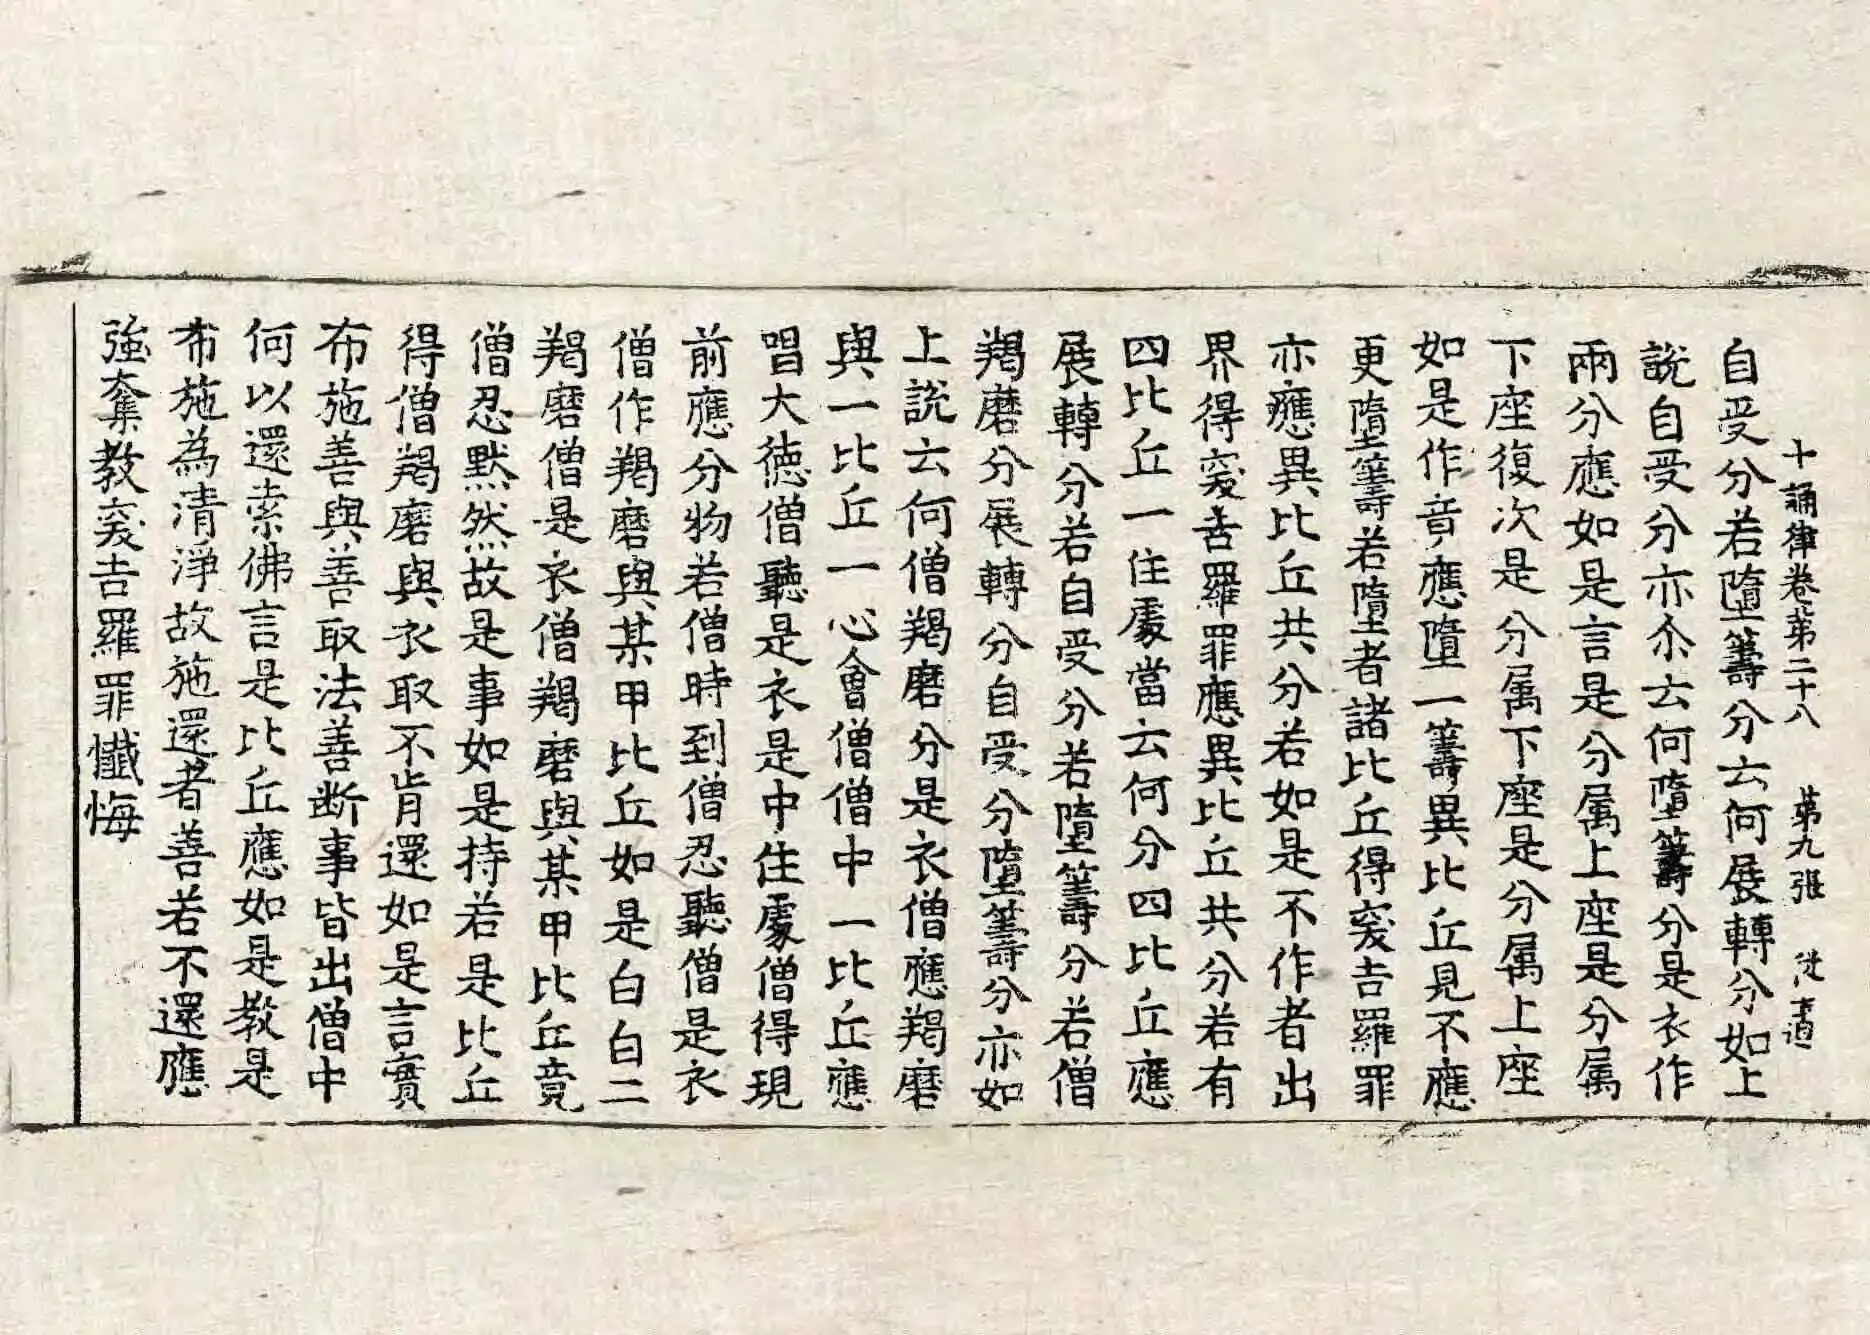 十誦律卷第二十八 第九張
自受分若墮籌分云何展轉分如上
說自受分亦尒云何墮籌分是衣作
兩分應如是言是分属上座是分属
下座復次是分属下座是分属上座
如是作音應墮一籌異比丘見不應
更墮籌若墮者諸比丘得突吉羅罪
亦應異比丘共分若如是不作者出
界得突吉羅罪應異比丘共分若有
四比丘一住處當云何分四比丘應
展轉分若自受分若墮籌分若僧
羯磨分展轉分自受分墮籌分亦如
上說云何僧羯磨分是衣僧應羯磨
與一比丘一心會僧僧中一比丘應
唱大德僧聽是衣是中住處僧得現
前應分物若僧時到僧忍聽僧是衣
僧作羯磨與某甲比丘如是白白二
羯磨僧是衣僧羯磨與某甲比丘竟
僧忍默然故是事如是持若是比丘
得僧羯磨與衣取不肯還如是言實
布施善與善取法善断事皆出僧中
何以還索佛言是比丘應如是教是
布施為清淨故施還者善若不還應
強奪教突吉羅罪懺悔